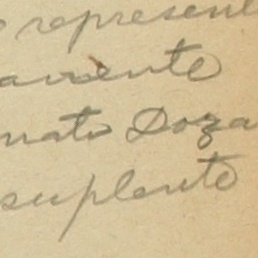 represent
nato Doza
suplente